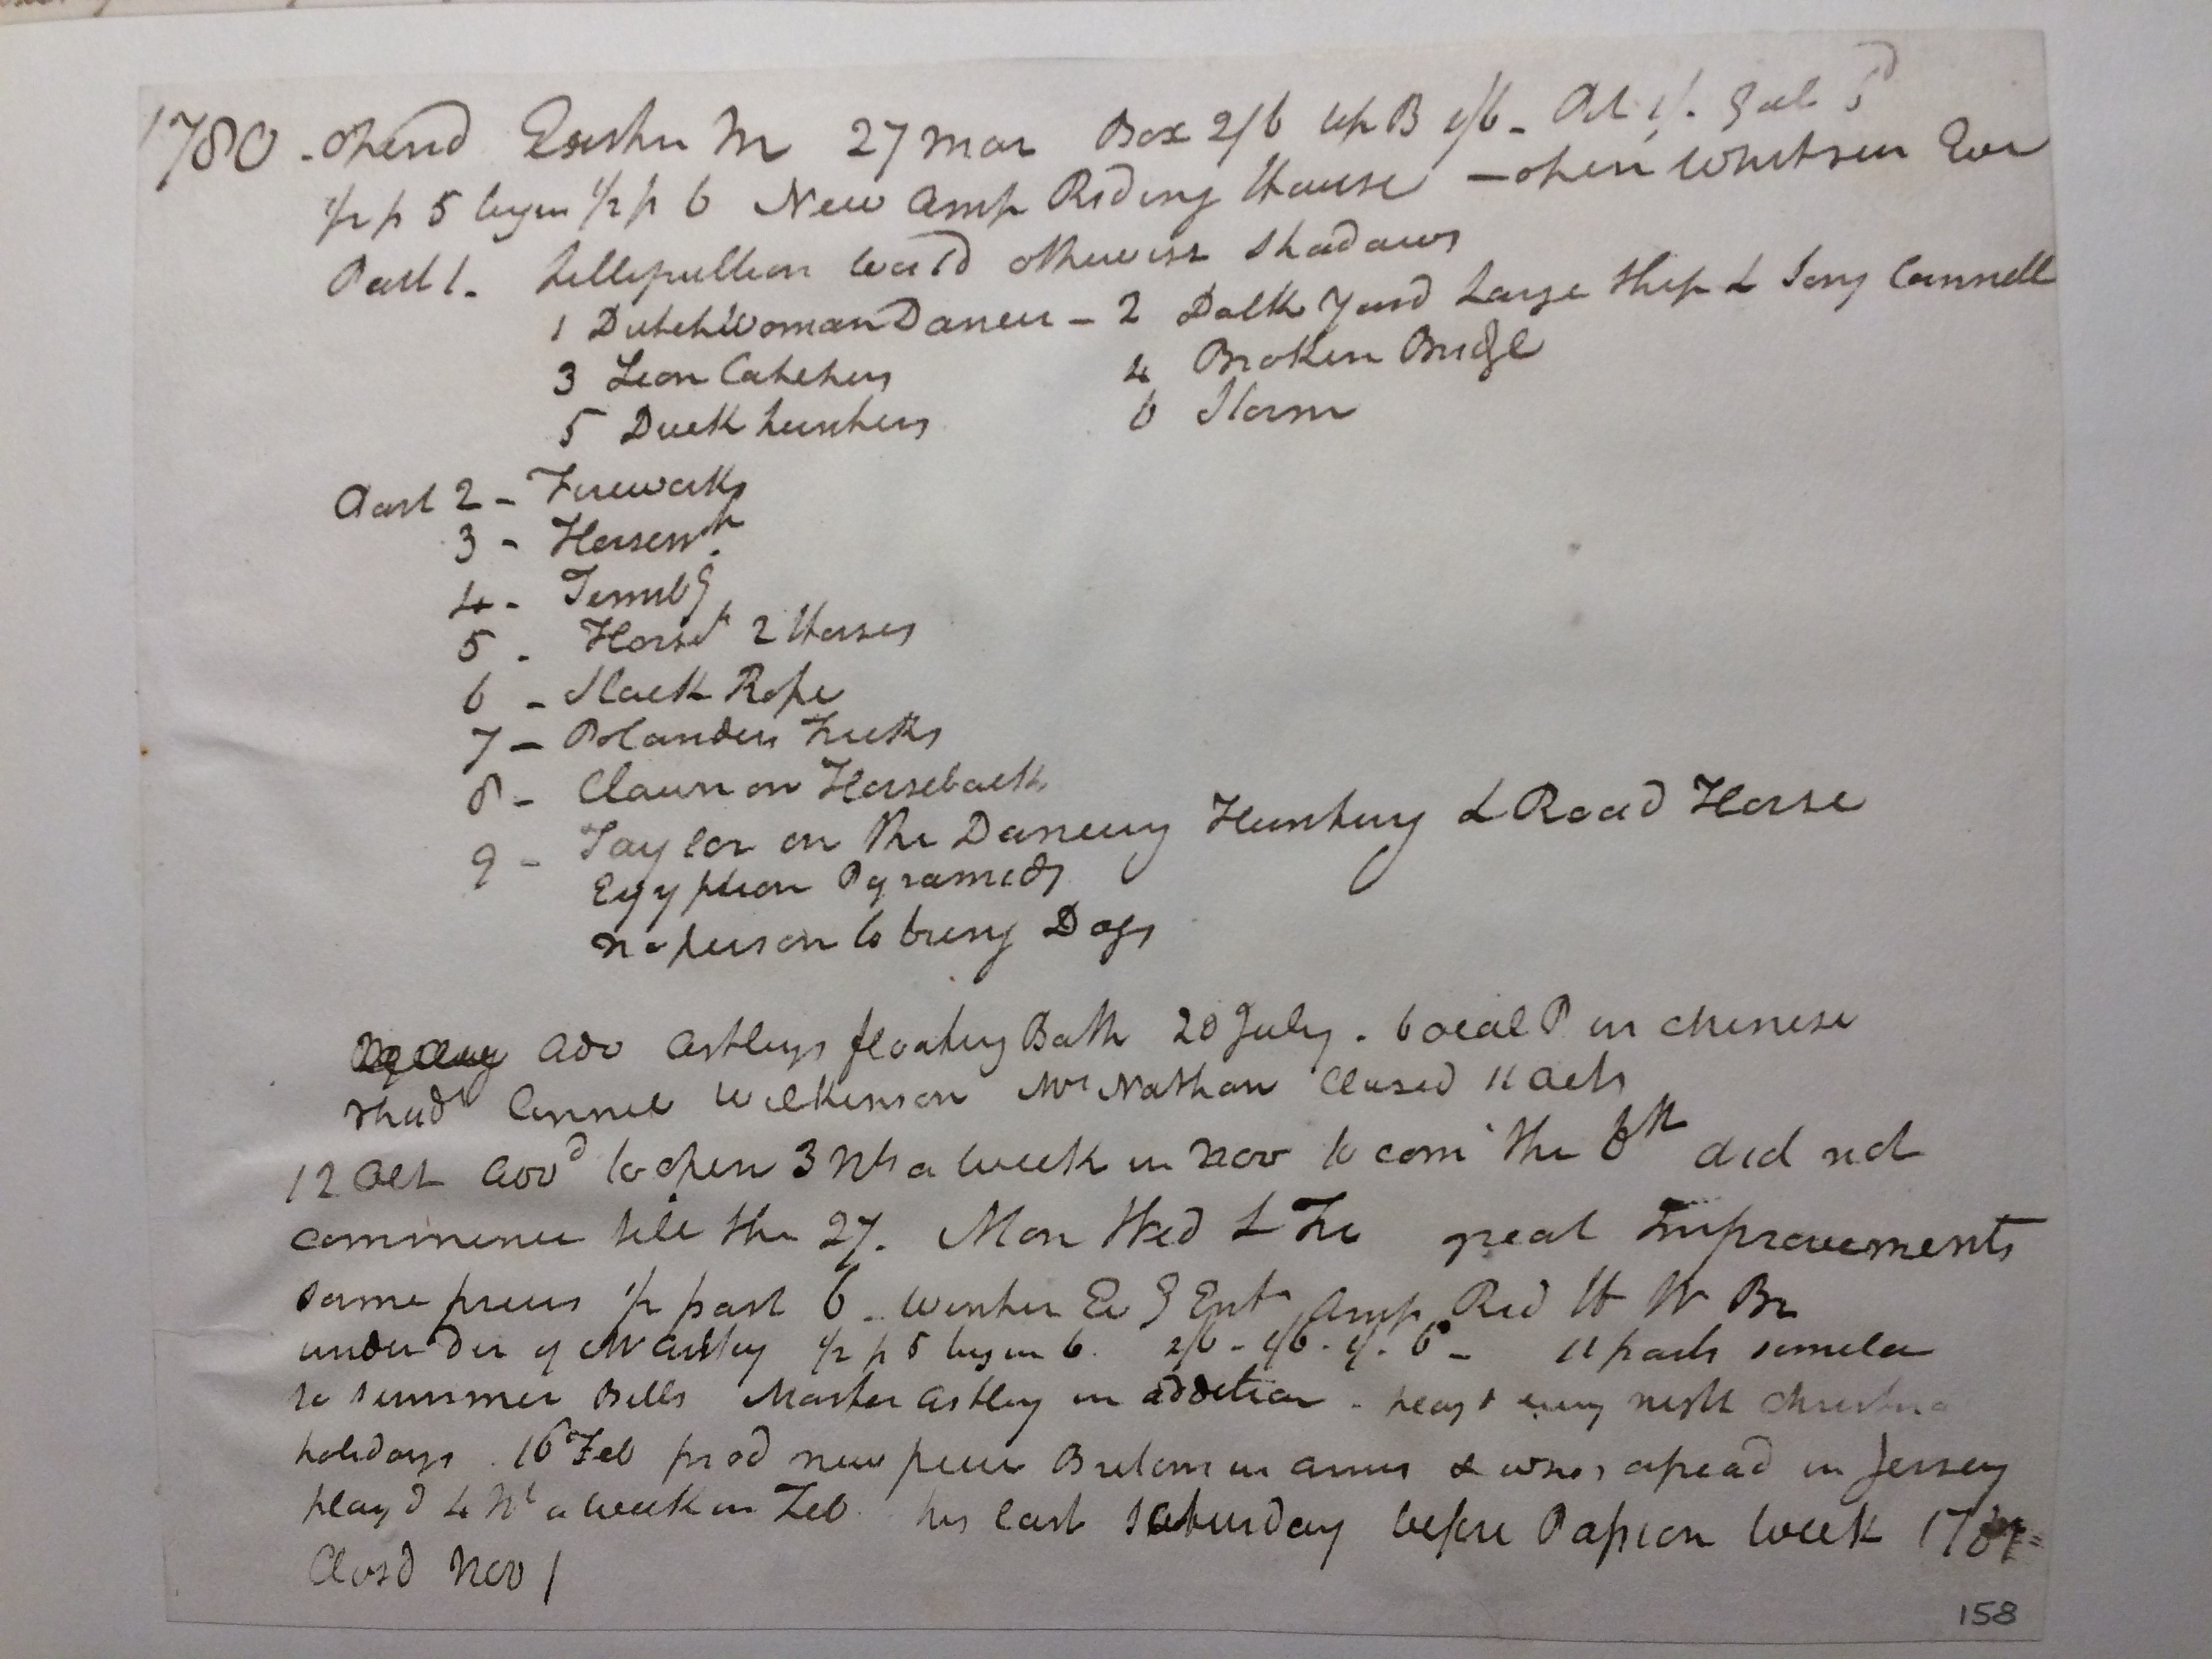 1780 - Opend Easter M 27 Mar Box 2/6 Up B 1/6 - Pit 1/- Gal 6d
1/2 p 5 begin 1/2 p 6 New Amp Riding House - open Whitsun Eve
Part 1 - Lilliputian World otherwise Shadows
1 Dutch Woman Dancer - 2 Dock Yard Large Ship & Song Connell
3 Lion Catchers 4 Broken Bridge
5 Duck hunters 6 Storm
Part 2 - Fireworks
3 - Horsemp
4 - Tumbg
5 - Horsep 2 Horses
6 - Slack Rope
7 - Polanders Tricks
8 - Clown on Horseback
9 - Taylor on the Dancing Hunting & Road Horse
Egyptian Pyramids
No person to bring Dogs
Adv Astleys floating Bath 20 July. Vocal P in Chinese
Shads Connel Wilkinson Mr Nathan Closed 11 Octr
12 Oct Advd to open 3 Nts a week in Nov to com the 6th did not
commence till the 27. Mon Wed & Fri great Improvements
same prices 1/2 past 6 - Winter Evg Entt Amp Rid H W Br
under Dir of Mr Astley 1/2 p 5 begin 6. 2/6 - 1/6 - 1/- 6d - 11 parts similar
to summer Bills Master Astley in addition - playd every night Christmas
holidays. 16 Feb prod new piece Britons in arms & was apread in Jersey
playd 4 Nts a week in Feb. his last Saturday before Passion Week
Closd Nov 1
158